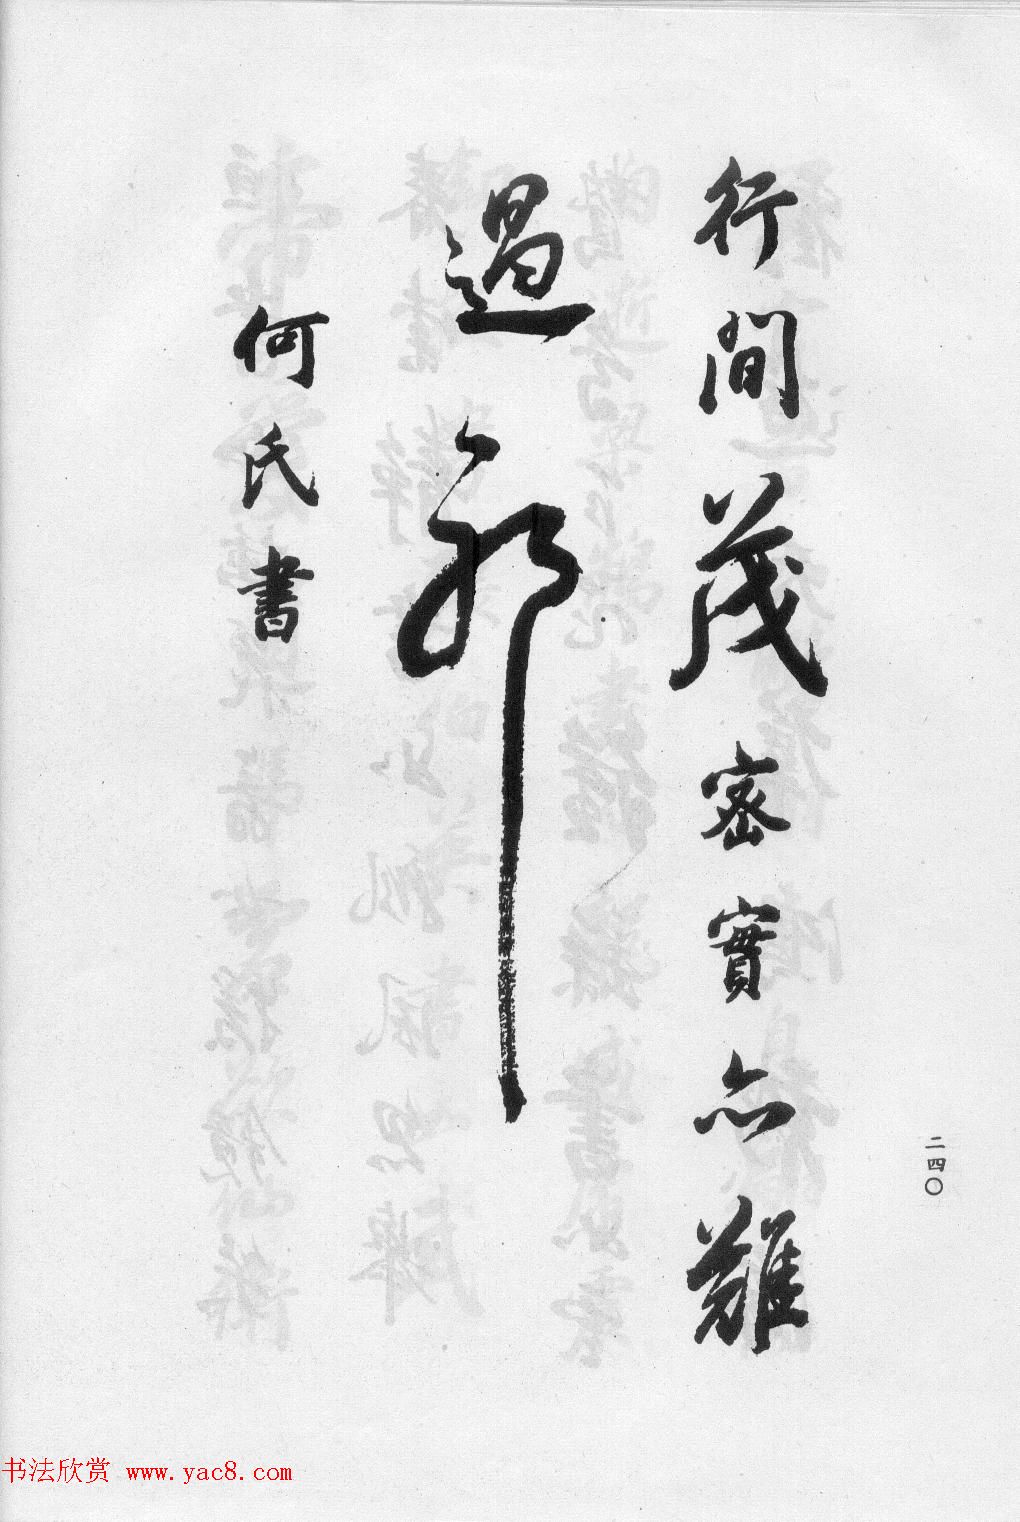 行間茂密實亦難
過耶
何氏書
二四〇
书法欣赏 www.yac8.com